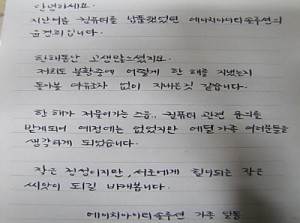 안녕하세요.
지난여름 컴퓨터를 납품했었던 에이치아이티솔루션의
입니다.
한해동안 고생많으셨지요.
저희도 불황중에 어떻게 한 해를 지냈는지
돌아볼 여유조차 없이 지나온것 같습니다.
한 해가 저물어가는 즈음, 컴퓨터 관련 문의를
받게되어 예정에는 없었지만 에덴가족 여러분들을
생각하게 되었습니다.
작은 정성이지만, 서로에게 힘이되는 작은
씨앗이 되길 바래봅니다.
에이치아이티솔루션 가족 일동